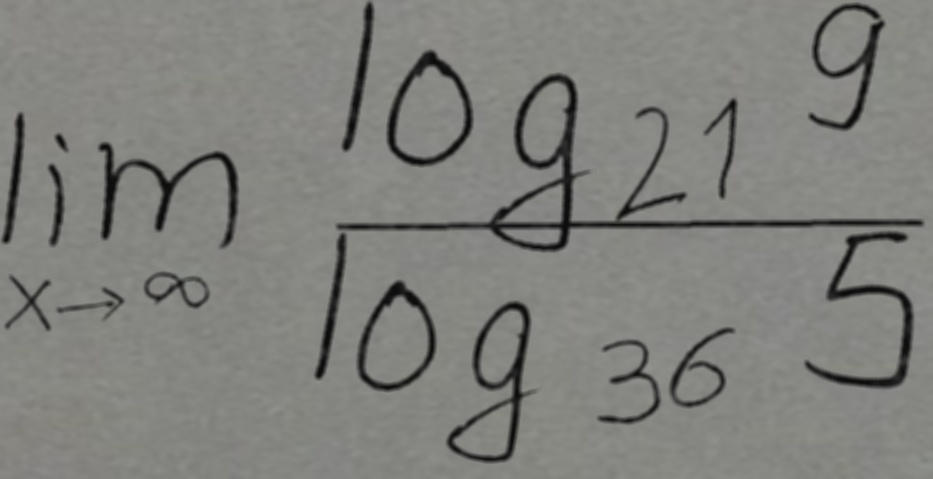 \lim_{x \to \infty} \frac{\log_{21} 9}{\log_{36} 5}